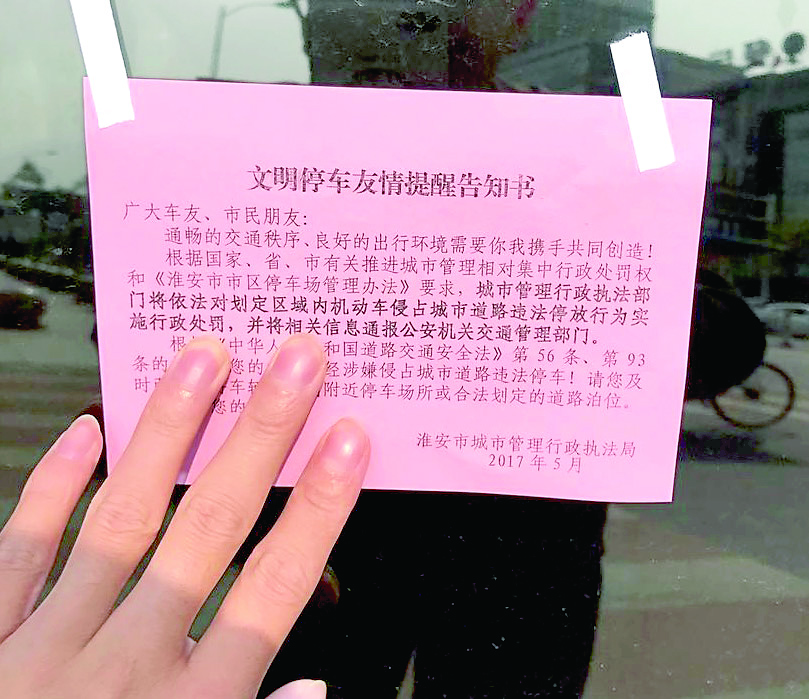 文明停车友情提醒告知书
广大车友、市民朋友:
通畅的交通秩序、良好的出行环境需要你我携手共同创造!
根据国家、省、市有关推进城市管理相对集中行政处罚权
和《淮安市市区停车场管理办法》要求,城市管理行政执法部
门将依法对划定区域内机动车侵占城市道路违法停放行为实
施行政处罚,并将相关信息通报公安机关交通管理部门。
根 《中华人 和国道路交通安全法》第 56 条、第 93
条的 您的 经涉嫌侵占城市道路违法停车!请您及
时 停车 附近停车场所或合法划定的道路泊位。
您的
淮安市城市管理行政执法局
2017 年 5 月